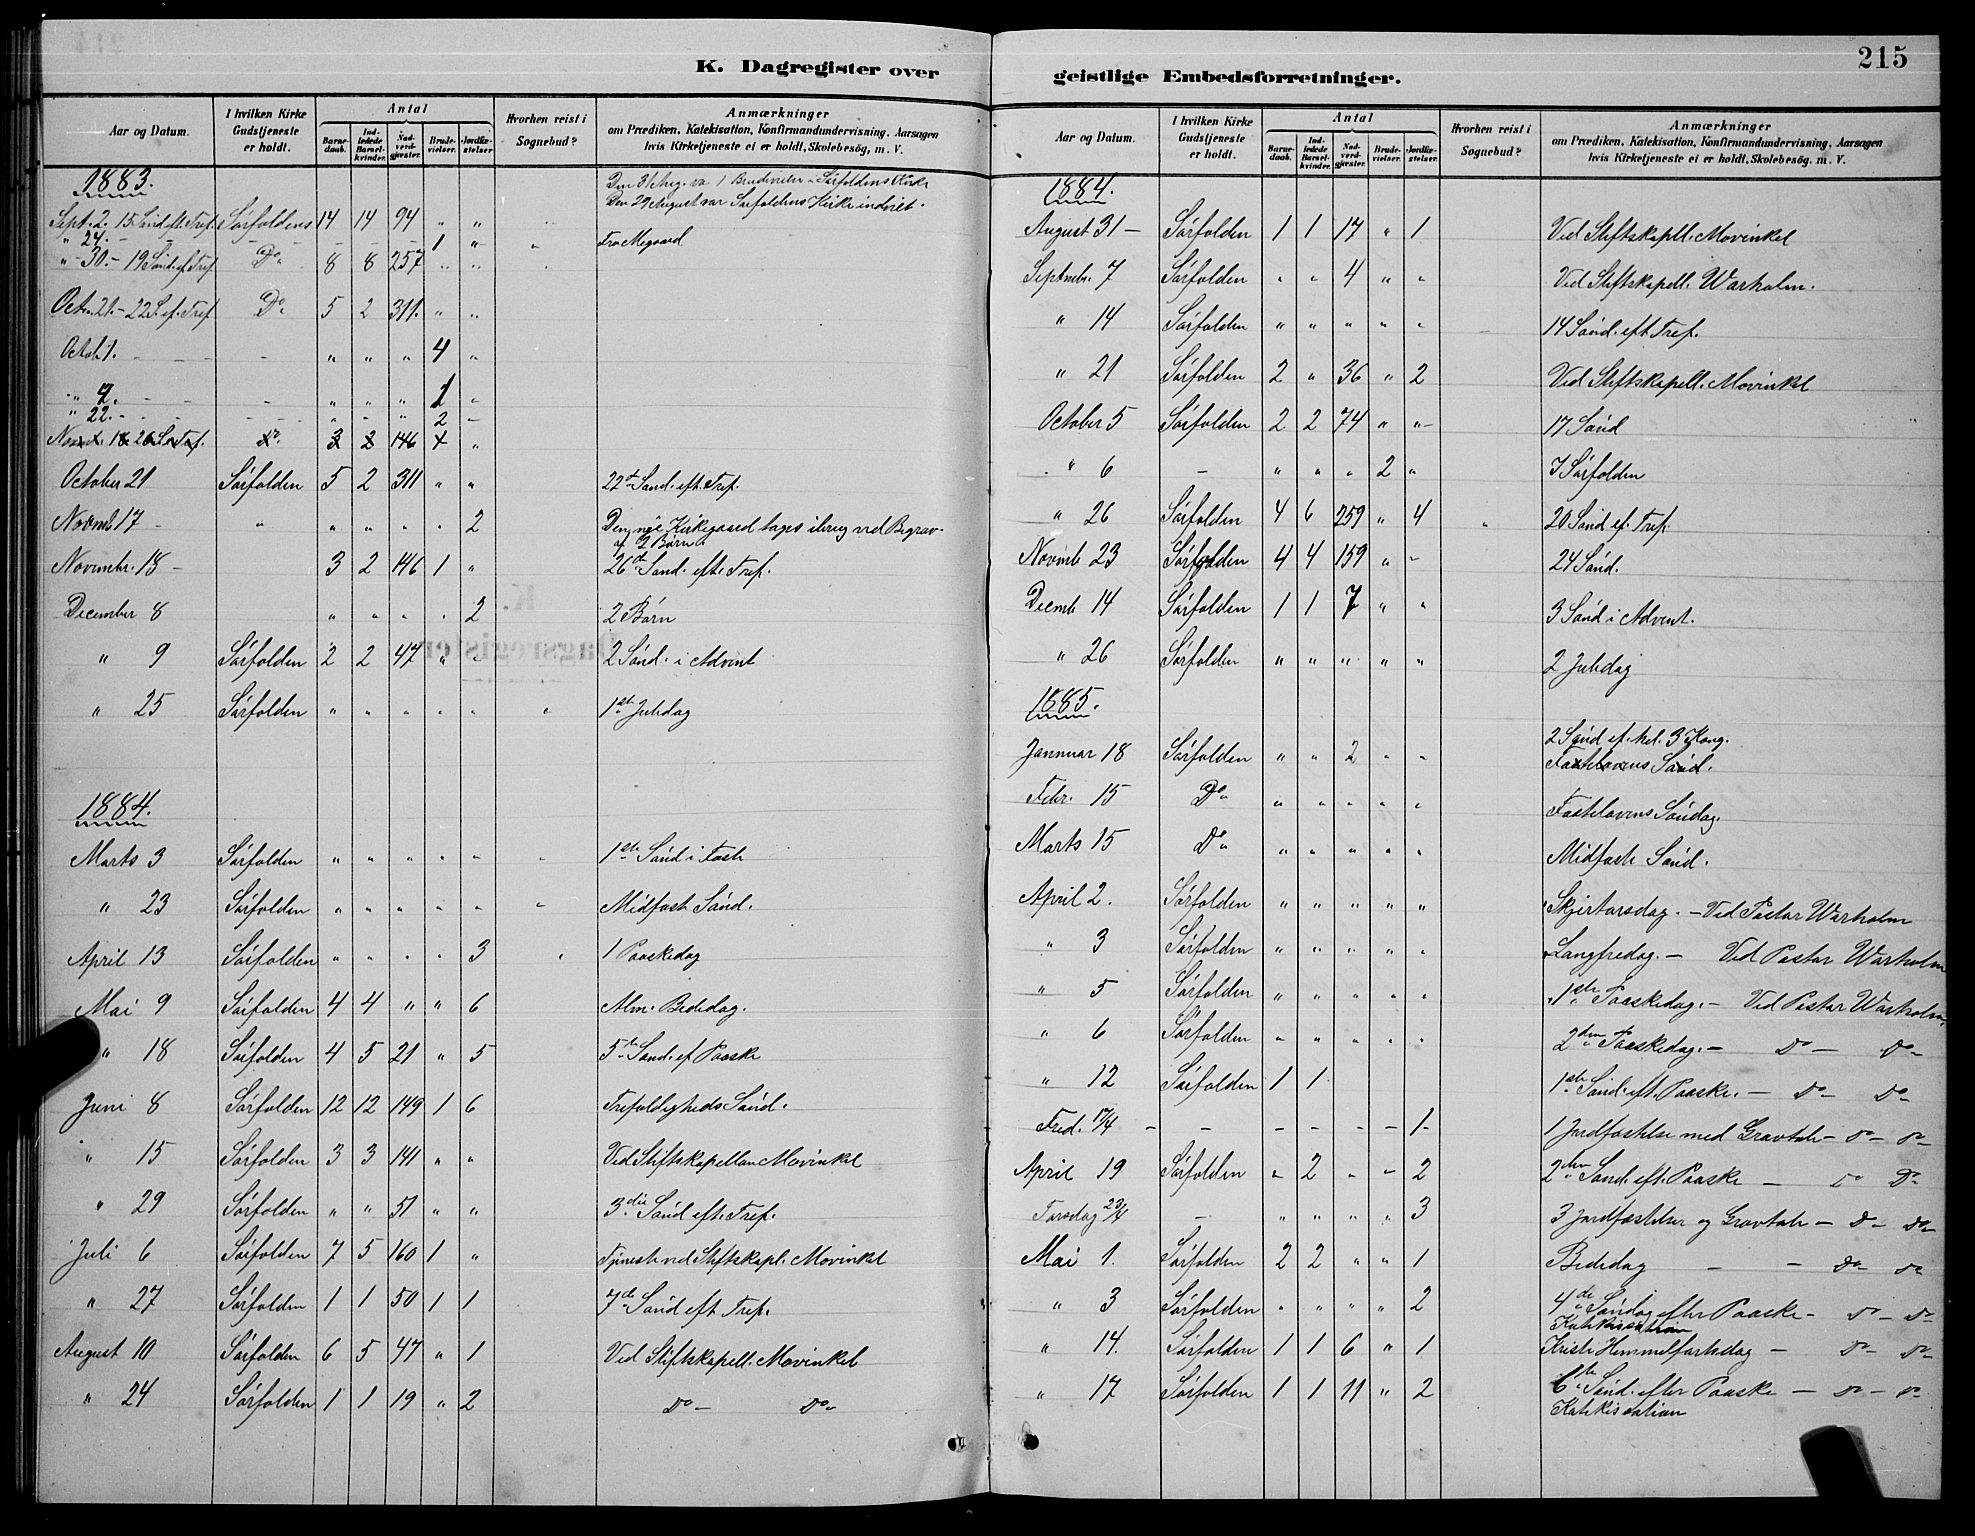 K. Dagregister over
Aar og Datum.
I hvilken Kirke Gudstjeneste er holdt.
Antal
Barne-daab.
Ind-ledede Barsel-kvinder.
Nad-verd-gjester.
Brude-vielser.
Jordfæ-stelser
Hvorhen reist i Sognebud?
Anmærkninger
om Prædiken, Katekisation, Konfirmandundervisning, Aarsagen
hvis Kirketjeneste ei er holdt, Skolebesög, m. V.
1883.
Den 31 Aug. va 1 Brudevielse i Sørfoldens Kirke
Den 29 August var Sørfoldens Kirke indviet.
Sept. 2. 15 Sønd. eft. Tref. Sørfoldens 14 14 94 " "
" 24. - - - - - 1 " " Fra Megaard
" 30. - 19 Sønd. ef. Tref. Do 8 8 257 " "
Oct. 21. - 22 S. ef. Tref Do 5 2 311. " "
Octob. 1. - - - " " " 4 "
" 7. - - - " " " 1 "
" 22. - - - " " " 2 -
Novb. 18 26 S. e. Tref. Do 3 2 146 1 "
October 21 Sørfolden 5 2 311 " " 22de Sønd. eft. Tref.
Novemb 17 - " " " " " 2 Den nye Kirkegaard tages i brug ved Begrav-
af 2 Børn.
Novembr. 18 - 3 2 146 1 " 26de Sønd. eft. Tref.
December 8 " " " " 2 2 Børn
" 9 Sørfolden 2 2 47 " " 2 Sønd. i Advent
" 25 Sørfolden " " " " " " 1ste Juledag
1884.
Marts 3 Sørfolden " " " " " " 1ste Sønd i Faste
" 23 Sørfolden " " " " " " Midfaste Sønd.
April 13 Sørfolden " " " " 3 " 1 Paaskedag
Mai 9 Sørfolden 4 4 " " 6 Alm. Bededag.
" 18 Sørfolden 4 5 21 " 5 5te Sønd. ef Paaske
Juni 8 Sørfolden 12 12 149 1 6 Trefoldigheds Sønd.
" 15 Sørfolden 3 3 141 " " Ved Stiftskapellan Movinkel
" 29 Sørfolden " " 51 " " 3die Sønd eft. Tref.
Juli 6 Sørfolden 7 5 160 1 " Tjeneste ved Stiftskapl. Movinkel
" 27 Sørfolden 1 1 50 1 1 7de Sønd eft Tref.
August 10 Sørfolden 6 5 47 " 1 Ved Stiftskapell. Movinkel
" 24 Sørfolden 1 1 19 " 2 Do - Do -
geistlige Embedsforretninger.
215
Aar og Datum.
I hvilken Kirke Gudstjeneste er holdt.
Antal
Barne-daab.
Ind-ledede Barsel-kvinder.
Nad-verd-gjester.
Brude-vielser.
Jordfæ-stelser
Hvorhen reist i Sognebud?
Anmærkninger
om Prædiken, Katekisation, Konfirmandundervisning, Aarsagen
hvis Kirketjeneste ei er holdt, Skolebesög. m. V.
1884.
August 31 - Sørfolden 1 1 17 " 1 Ved Stiftskapll. Movinkel
Septembr. 7 Sørfolden " " 4 " " Ved Stiftskapell. Warholm.
" 14 Sørfolden " " " " " 14 Sønd. eft Tref.
" 21 Sørfolden 2 " 36 " 2 Ved Stiftskapell. Movinkel
October 5 Sørfolden 2 2 74 " " 17 Sønd
" 6 - " " " 2 " I Sørfolden
" 26 Sørfolden 4 6 259 " 4 20 Sønd ef. Tref.
Novemb 23 Sørfolden 4 4 159 " - 24 Sønd.
Decmb 14 Sørfolden 1 1 7 " " 3 Sønd i Advent.
" 26 Sørfolden " " " " " 2 Juledag
1885.
Januar 18 Sørfolden " " 2 " " 2 Sønd ef. Hel. 3 Kong.
Fastelavens Sønd.
Febr. 15 Do " " " " " Fastelavens Søndag.
Marts 15 Do " " " " " Midfaste Sønd.
April 2. Sørfolden " " " " " Skjertorsdag. - Ved Pastor Warholm
" 3 Sørfolden " " " " " Langfredag. - Ved Pastor Warholm
" 5 Sørfolden " " " " " 1ste Paaskedag. - Ved Pastor Warholm
" 6 Sørfolden " " " " " 2den Paaskedag. - Do - Do -
" 12 Sørfolden 1 1 1ste Sønd. eft. Paaske. - Do - Do -
Fred. 17/4 - - - - - - 1 - 1 Jordfæstelse med Gravtale - Do - Do -
April 19 Sørfolden " 2 " - 2 2den Sønd. eft. Paaske - Do Do
Torsdag 23/4 - " " " " 3 3 Jordfæstelser og Gravtale - Do - Do -
Mai 1. Sørfolden 2 2 " " 1 Bededag - - Do - Do
" 3 Sørfolden " " " " 2 4de Søndag efter Paaske - Do - Do -
Katekisation
" 14. Sørfolden 1 1 6 " 1 Kristi Himmelfartsdag - Do - Do -
" 17 Sørfolden 1 1 11 " 2 6te Sønd. efter Paaske - Do - Do -
Katekisation